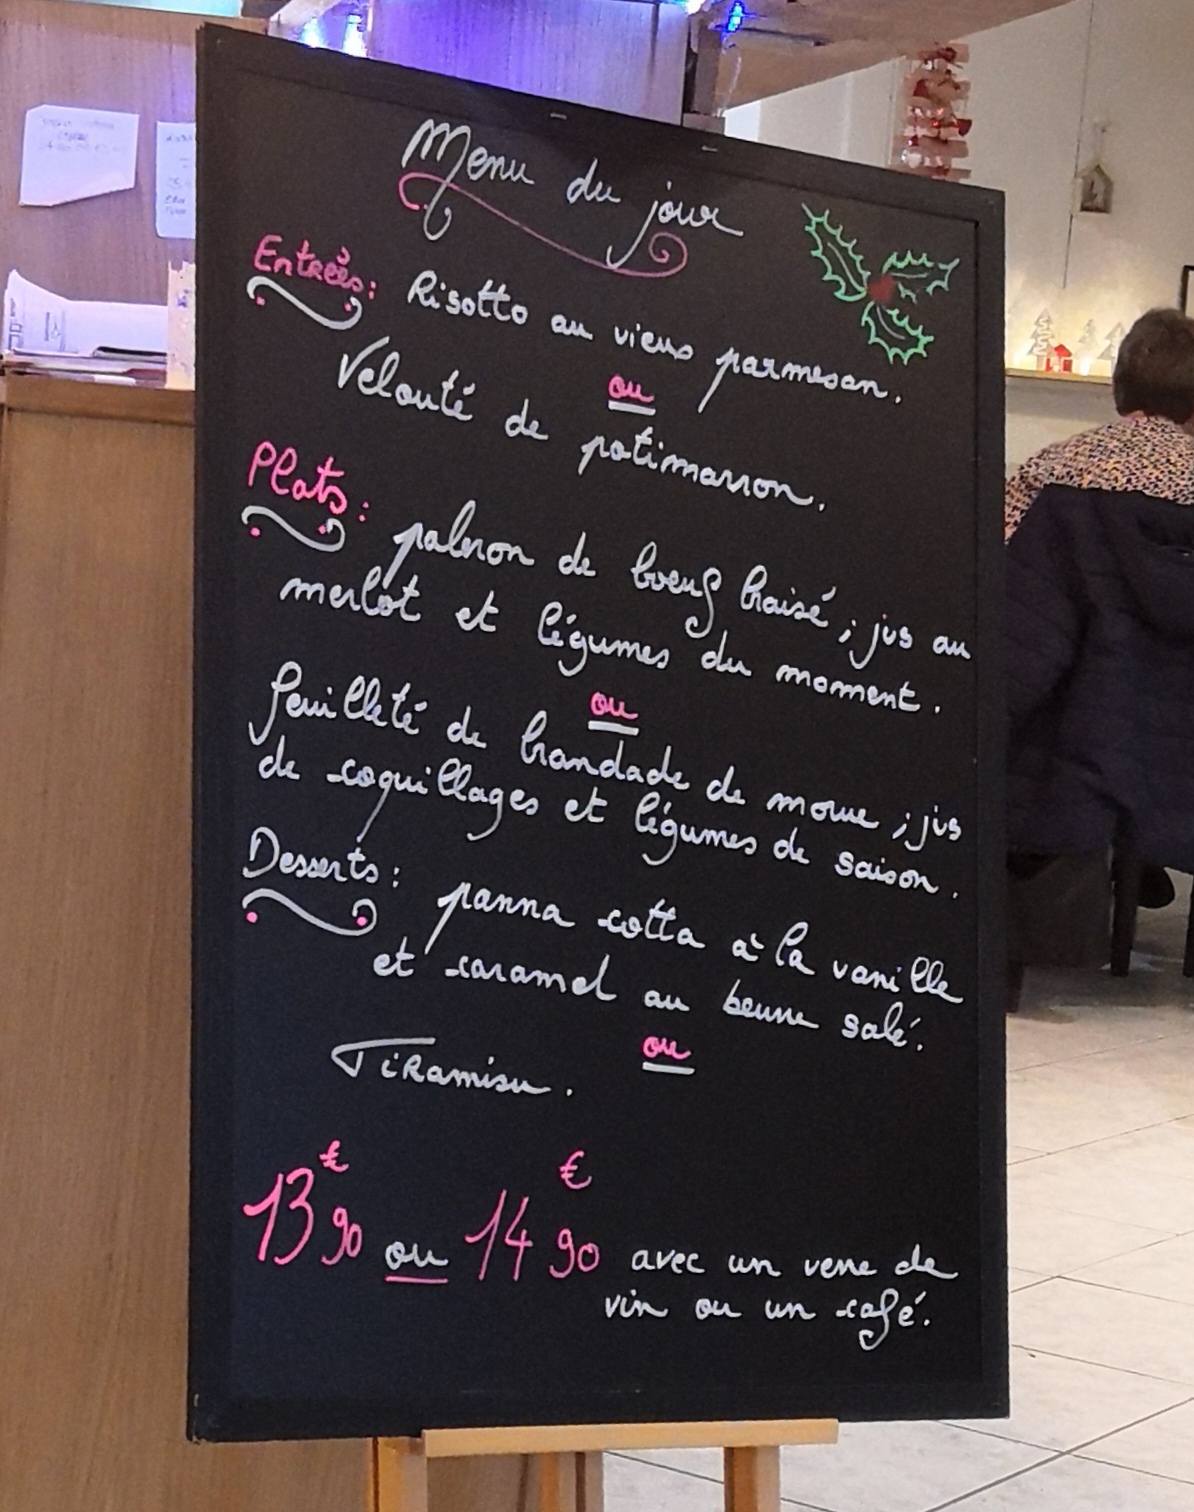 Menu du jour
Entrées: Risotto au vieux parmesan.
ou
Velouté de potimarron.
Plats: paleron de boeuf braisé; jus au
merlot et légumes du moment.
ou
feuilleté de brandade de morue; jus
de coquillages et légumes de saison.
Desserts: panna cotta à la vanille
et caramel au beurre salé.
ou
Tiramisu.
13€90 ou 14€90 avec un verre de
vin ou un café.